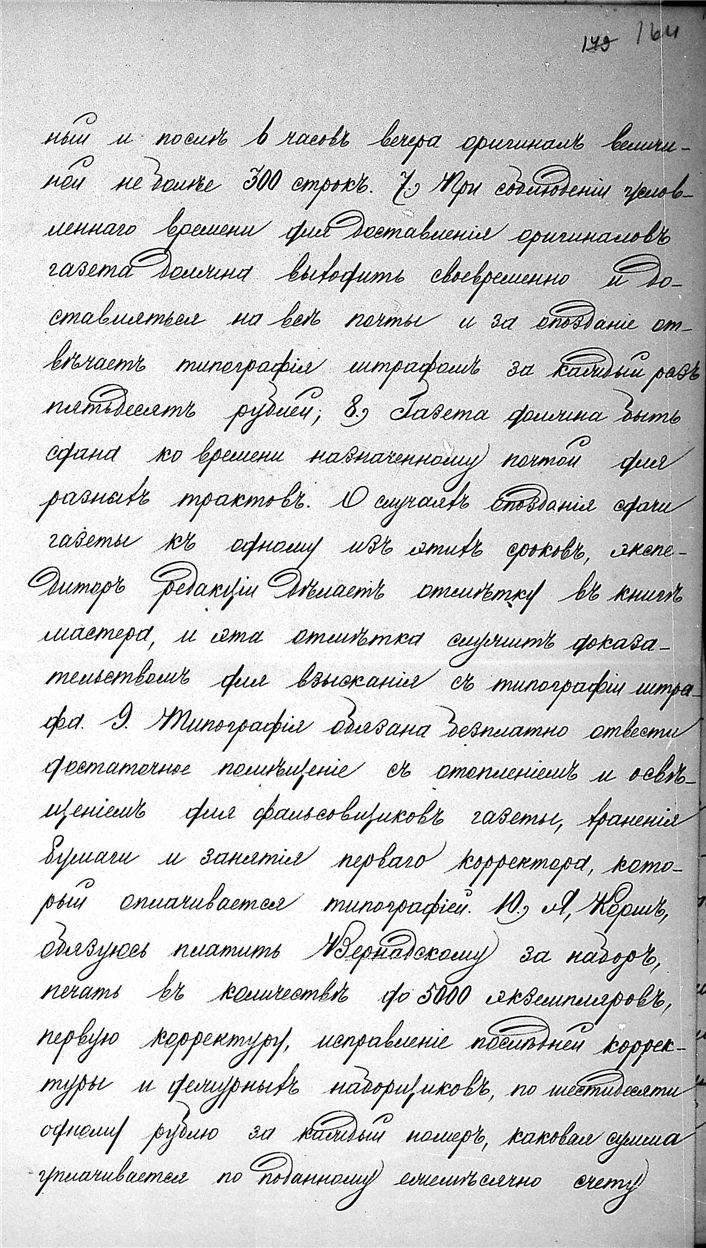 179 164
ный и послѣ 6 часовъ вечера оригиналъ величи-
ной не болѣе 300 строкъ. 7, При соблюденіи услов-
леннаго времени для доставленія оригиналовъ
газета должна выходить своевременно и до-
ставляться на всѣ почты и за опозданіе от-
вѣчаетъ типографія штрафомъ за каждый разъ
пятьдесятъ рублей; 8, Газета должна быть
сдана ко времени назначенному почтой для
разныхъ трактовъ. О случаяхъ опозданія сдачи
газеты къ одному изъ этихъ сроковъ, экспе-
диторъ редакціи дѣлаетъ отмѣтку въ книгѣ
мастера, и эта отмѣтка служитъ доказа-
тельствомъ для взысканія съ типографіи штра-
фа. 9. Типографія обязана безплатно отвести
достаточное помѣщеніе съ отопленіемъ и освѣ-
щеніемъ для фальсовщиковъ газеты, храненія
бумаги и занятія перваго корректора, кото-
рый оплачивается типографіей. 10, Я, Коршъ,
обязуюсь платить Вернадскому за наборъ,
печать въ количествѣ до 5000 экземпляровъ,
первую корректуру, исправленіе послѣдней коррек-
туры и дежурныхъ наборщиковъ, по шестидесяти
одному рублю за каждый номеръ, каковая сумма
уплачивается по поданному ежемѣсячно счету